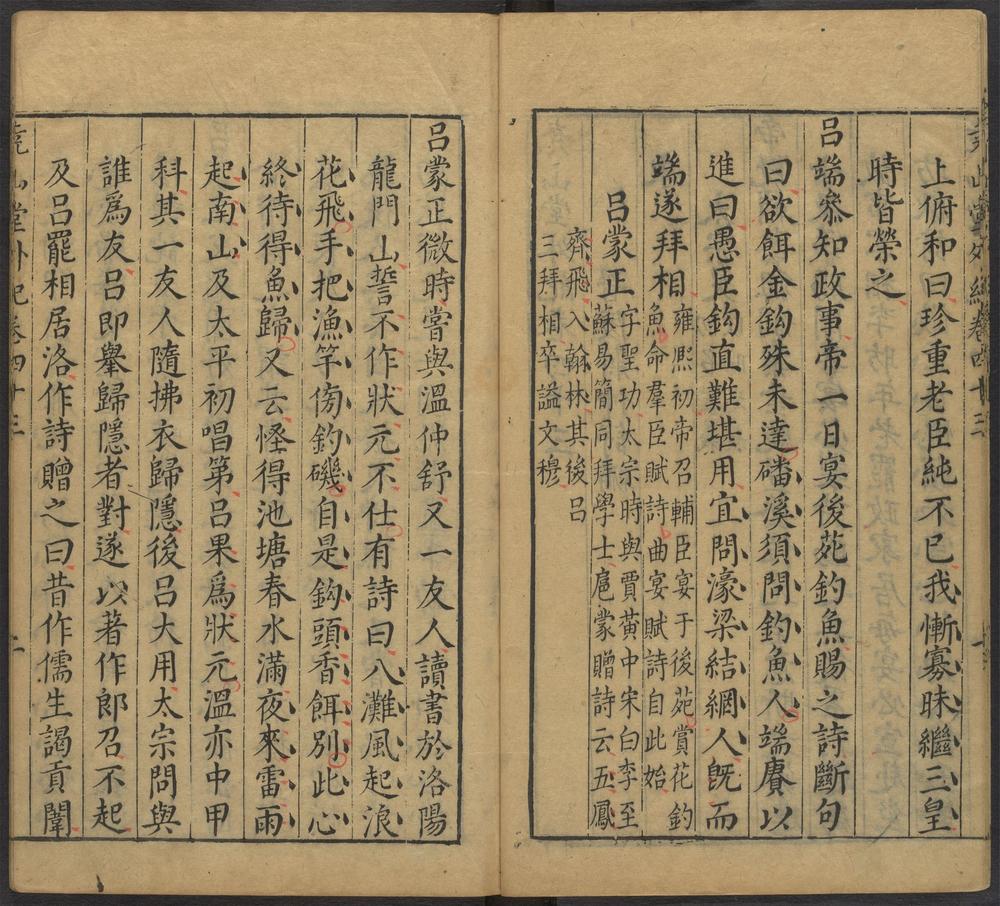 上俯和曰珍重老臣純不已我慚寡昧繼三皇
時皆榮之
呂端叅知政事帝一日宴後苑釣魚賜之詩斷句
曰欲餌金鈎殊未達磻溪須問釣魚人端賡以
進曰愚臣鈎直難堪用宜問濠梁結網人旣而
端遂拜相
雍熙初帝召輔臣宴于後苑賞花釣
魚命羣臣賦詩曲宴賦詩自此始
呂蒙正
字聖功太宗時與賈黃中宋白李至
蘇易簡同拜學士扈蒙贈詩云五鳳
齊飛入翰林其後呂
三拜相卒謚文穆
呂蒙正微時嘗與溫仲舒又一友人讀書於洛陽
龍門山誓不作狀元不仕有詩曰八灘風起浪
花飛手把漁竿傍釣磯自是鈎頭香餌別此心
終待得魚歸又云怪得池塘春水滿夜來雷雨
起南山及太平初唱第呂果爲狀元溫亦中甲
科其一友人隨拂衣歸隱後呂大用太宗問與
誰爲友呂即舉歸隱者對遂以著作郎召不起
及呂罷相居洛作詩贈之曰昔作儒生謁貢闈
堯山堂外紀卷四十三